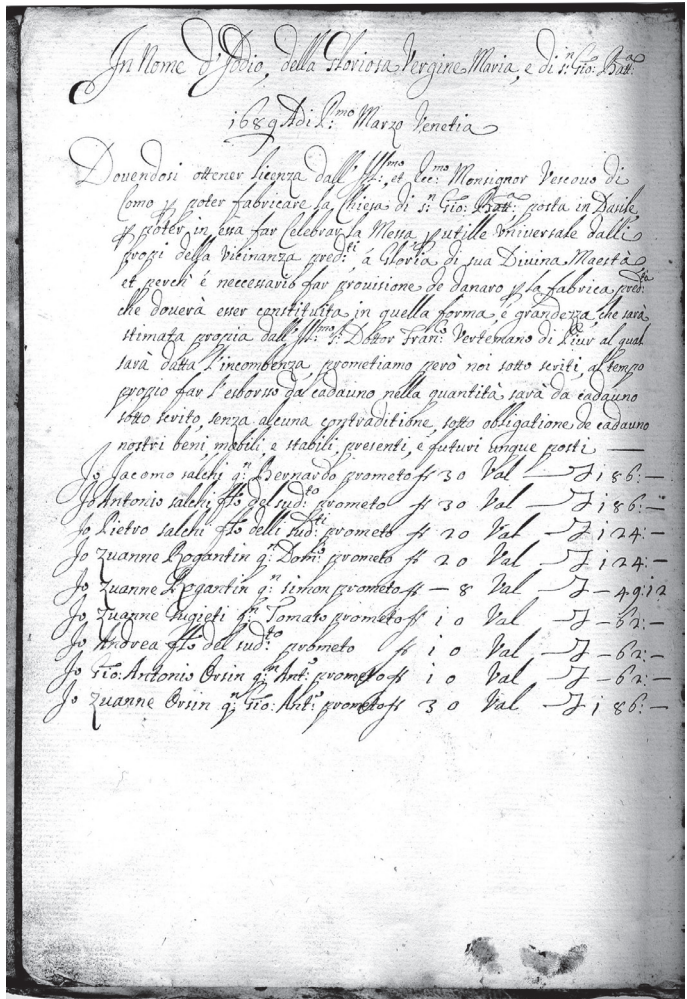 In Nome d'Iddio, della Gloriosa Vergine Maria, e di S.n Gio: Batt.a
1689 Adi P.mo Marzo Venetia
Dovendosi ottener licenza dall' Ill.mo et Ecc.mo Monsignor Vescovo di
Como p poter fabricare la Chiesa di S.n Gio: Batt.a posta in Dasile
p poter in essa far Celebrar la Messa p utille Universale dalli
propi della Vicinanza pred.ti á Gloria di sua Divina Maestà
et perche é neccessario far provisione de danaro p la fabrica pred.ta
che doverà esser constituita in quella forma, e grandezza, che sarà
stimata propia dall' Ill.mo S.r Dottor Fran.co Vertemano di Piur al qual
sarà datta l'incombenza, prometiamo però noi sotto scriti, al tempo
propio far l'esborsso da cadauno nella quantità sarà da cadauno
sotto scrito, senza alcuna contraditione, sotto obligatione de cadauno
nostri beni mobili e stabili, presenti, e futuri unque posti —
Io Jacomo salchi q.m Bernardo prometo fi 30 Val — L 186:—
Io Antonio salchi f.lo del sud.to prometo fi 30 Val — L 186:—
Io Pietro salchi f.lo delli sud.ti prometo fi 20 Val — L 124:—
Io Zuanne Rogantin q.m Dom.o prometo fi 20 Val — L 124:—
Io Zuanne Rogantin q.m simon prometo fi — 8 Val L — 49:12
Io Zuanne q.m Tomaso prometo fi 10 Val — L — 62:—
Io Andrea f.lo del sud.to prometo fi 10 Val — L — 62:—
Io Gio: Antonio Orsin q.m Ant.o prometo fi 10 Val — L — 62:—
Io Zuanne Orsin q.m Gio: Ant.o prometo fi 30 Val — L 186:—